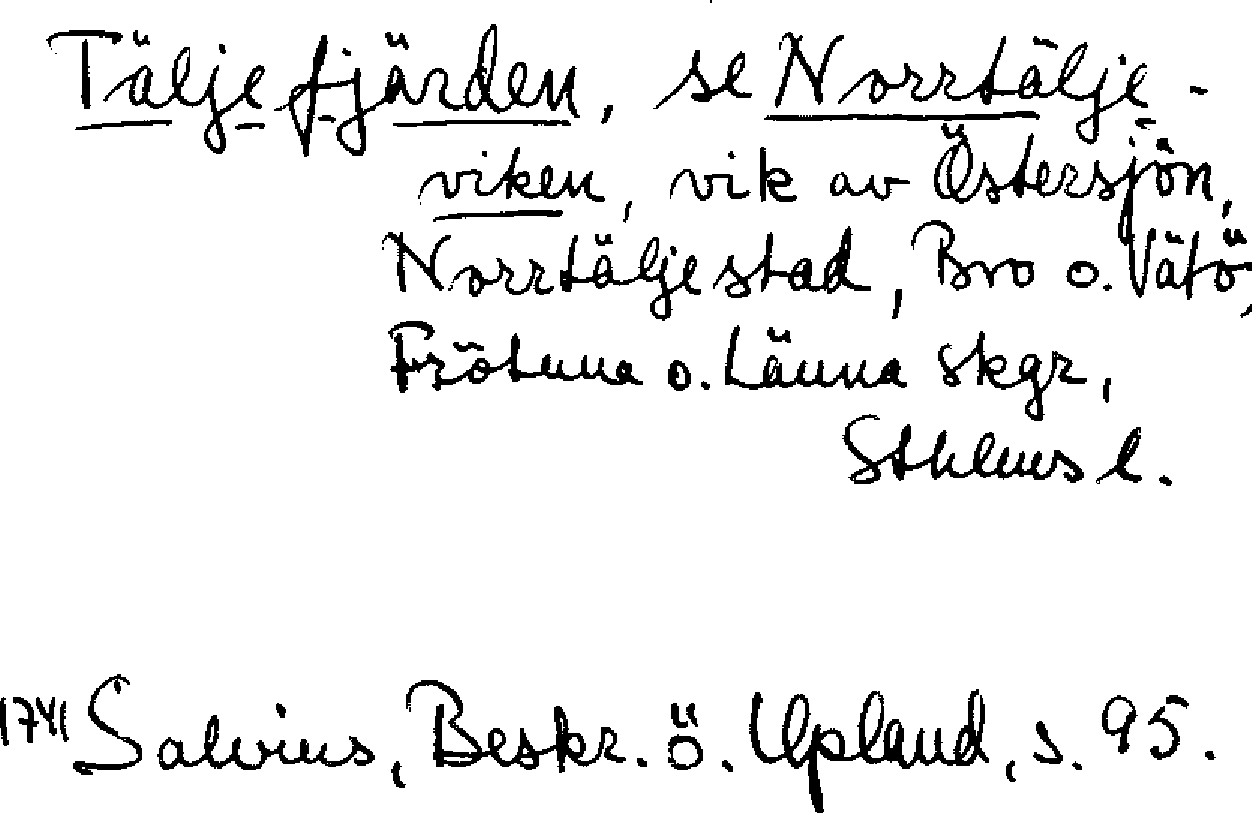 Täljefjärden, se Norrtälje-
viken, vik av Östersjön,
Norrtälje stad, Bro o. Vätö,
Frötuna o. Länna skgr,
Sthlms l.
1741 Salvius, Beskr. ö. Upland, s. 95.